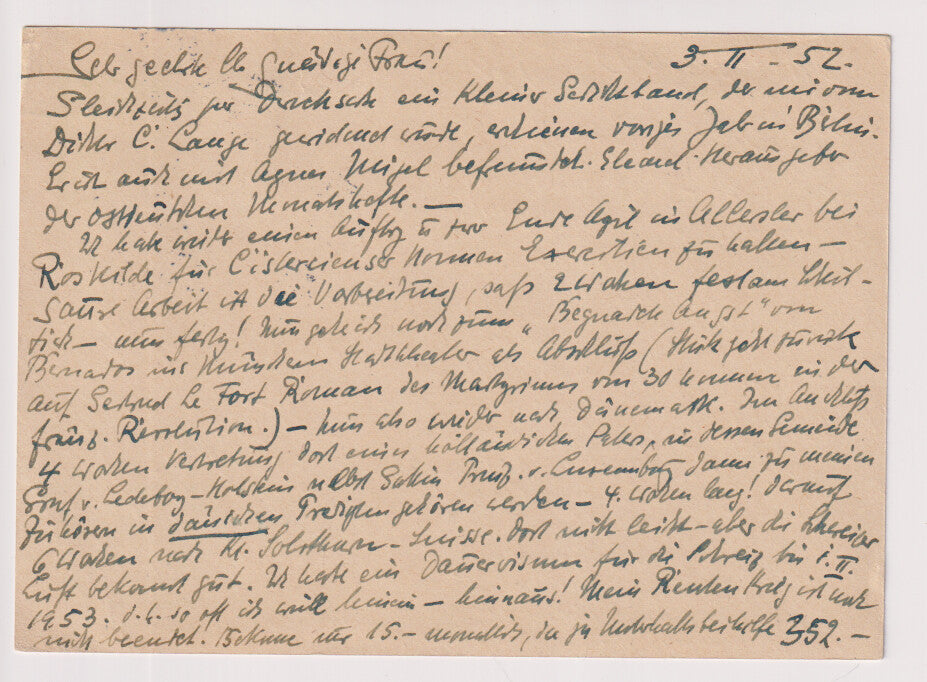 Sehr geehrte gnädige Frau! 3. II. - 52.
Gleichzeitig per Drucksache ein kleiner Gedichtband, der mir vom
Dichter C. Lange gewidmet wurde, erschienen voriges Jahr in Berlin.
Er ist auch mit Agnes Miegel befreundet. Ehemal. Herausgeber
der Ostdeutschen Monatshefte. —
Ich habe wieder einen Auftrag u zwar Ende April in bei
Roskilde für Cistercienser Nonnen Exerzitien zu halten —
Saure Arbeit ist die Vorbereitung, saß 2 Wochen fest am Schreib-
tisch — nun fertig! Nun gehe ich noch zum „Begnadete Angst" von
Bernanos ins Münchens Stadttheater als Abschluß (Stück geht zurück
auf Gertrud le Fort Roman des Martyriums von 30 Nonnen in der
franz. Revolution.) — Nun also wieder nach Dänemark. Im Anschluß
4 Wochen Vertretung dort eines holländischen Paters, in dessen Gemeinde
Graf v. - Holstein nebst Gattin Prinz. v. Luxemburg dann zu meinen
Zuhörern in dänischen Predigten gehören werden — 4. Wochen lang! Darauf
6 Wochen nach Kt. Solothurn - Suisse. Dort nicht leicht — aber die Schweizer
Luft bekommt gut. Ich habe ein Dauervisum für die Schweiz bis 1. II.
1953. d. h. so oft ich will hinein — hinaus! Mein Rentenkrieg ist noch
nicht beendet. Bekomme nur 15.- monatlich, da zu Unterhaltsbeihilfe 352. —